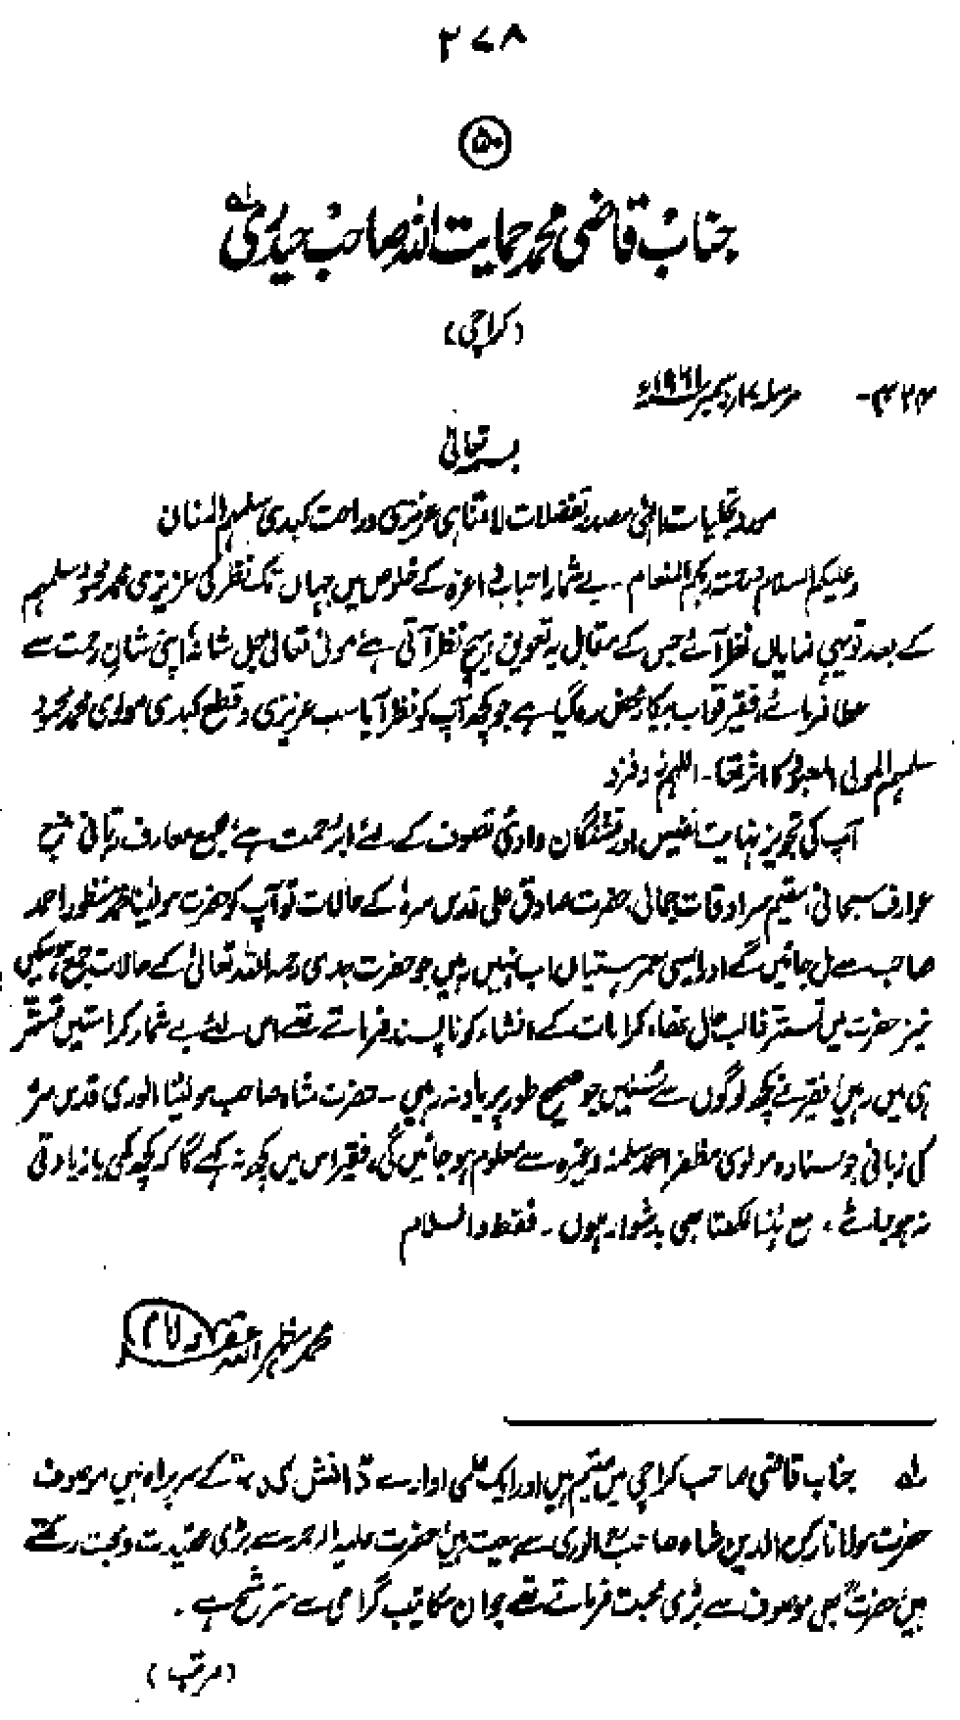 ۲۷۸
۵۰
جناب قاضی محمد حمایت اللہ صاحب حیدری
(کراچی)
مرسلہ دسمبر ۱۹۶۱ء
بسمہ تعالیٰ
مورد تجلیات الٰہی مصدر تفضلات لامتناہی عزیزی و راحت کبدی سلمہم المنان
وعلیکم السلام و رحمتہ ربکم المنعام ۔ بے شمار احباب و اعزہ کے خلوص میں جہاں تک نظر کی عزیزی محمد محمود سلمہم
کے بعد نمایاں نظر آئے جس کے مقابل یہ تعویق ہیچ نظر آتی ہے مولیٰ تعالیٰ جل شانہٗ اپنی شان رحمت سے
عطا فرمائے، فقیر تو اب بیکار محض رہ گیا ہے جو کچھ آپ کو نظر آیا سب عزیزی و قطع کبدی مولوی محمد محمود
سلمہم المولیٰ المعبود کا اثر تھا ۔ اللہم زد فزد
آپ کی تجویز نہایت نفیس اور تشنگان وادئ تصوف کے لئے ابر رحمت ہے، جمع معارف ربانی
عوارف سبحانی، مقیم سرادقات جمالی، حضرت صادق علی قدس سرہٗ کے حالات تو آپ کو حضرت مولینا محمد منظور احمد
صاحب سے مل جائیں گے اور ایسی معمر ہستیاں اب نہیں رہیں جو حضرت جدی رحمہ اللہ تعالیٰ کے حالات جمع ہوسکیں
نیز حضرت میں تستر غالب حال تھا، کرامات کے افشاء کو ناپسند فرماتے تھے اس لئے بے شمار کرامتیں تستر
ہی میں رہیں فقیر نے کچھ لوگوں سے سُنیں جو صحیح طور پر یاد نہ رہیں ۔ حضرت شاہ صاحب مولینا الوری قدس سرہٗ
کی زبانی جو سنا وہ مولوی مظفر احمد سلمہٗ وغیرہ سے معلوم ہو جائیں گی، فقیر اس میں کچھ نہ کہے گا کہ کچھ کمی یا زیادتی
نہ ہو جائے، مع ہذا لکھتا بھی بدشوار ہوں ۔ فقط والسلام
محمد مظہر اللہ غفرلہ
جناب قاضی صاحب کراچی میں مقیم ہیں اور ایک علمی ادارے کے سربراہ ہیں موصوف
حضرت مولانا رکن الدین شاہ صاحب الوری سے بیعت ہیں، حضرت علیہ الرحمہ سے بڑی عقیدت و محبت رکھتے
ہیں، حضرت بھی موصوف سے بڑی محبت فرماتے تھے جو ان مکاتیب گرامی سے مترشح ہے ۔
(مرتب)